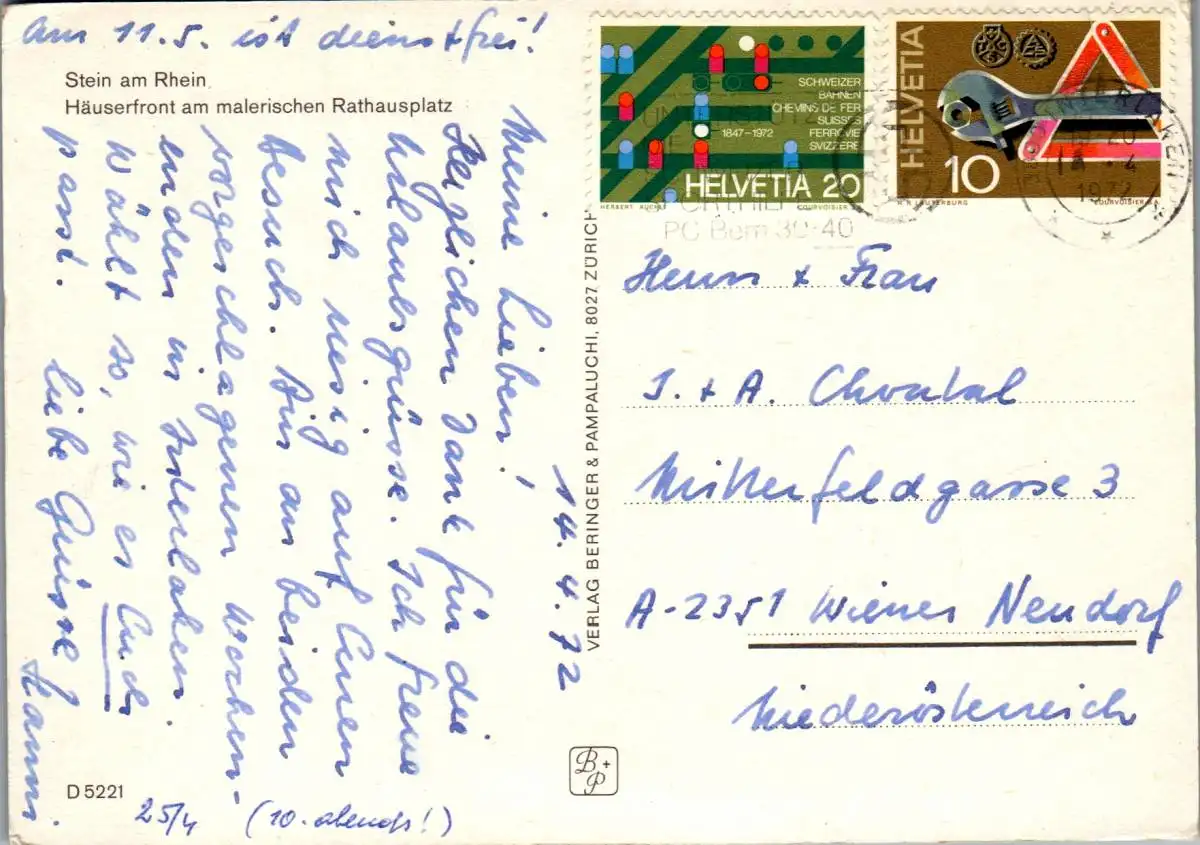 am 11.5. ist dienstfrei!
Stein am Rhein
Häuserfront am malerischen Rathausplatz
14.4.72
Meine Lieben!
Herzlichen Dank für die
Urlaubsgrüsse. Ich freue
mich riesig auf Euren
Besuch. Bin an beiden
vorgeschlagenen Wochen-
enden in Interlaken.
Wählt so, wie es Euch
passt. Liebe Grüsse!
Hanni.
25/4 (10. abends!)
D 5221
VERLAG BERINGER & PAMPALUCHI, 8027 ZÜRICH
B+P
SCHWEIZER
BAHNEN
CHEMINS DE FER
SUISSES
1847-1972 FERROVIE
SVIZZERE
HELVETIA 20
COURVOISIER
HELVETIA
10
H.R. LAUTERBURG
COURVOISIER S.A.
INTERLAKEN
1972
PC Bern 30-40
Herrn + Frau
J. + A. Chvatal
Mitterfeldgasse 3
A-2351 Wiener Neudorf
Niederösterreich